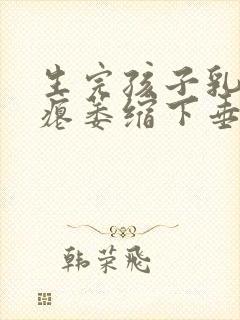 生完孩子乳
瘪萎缩下垂
韩荣飛